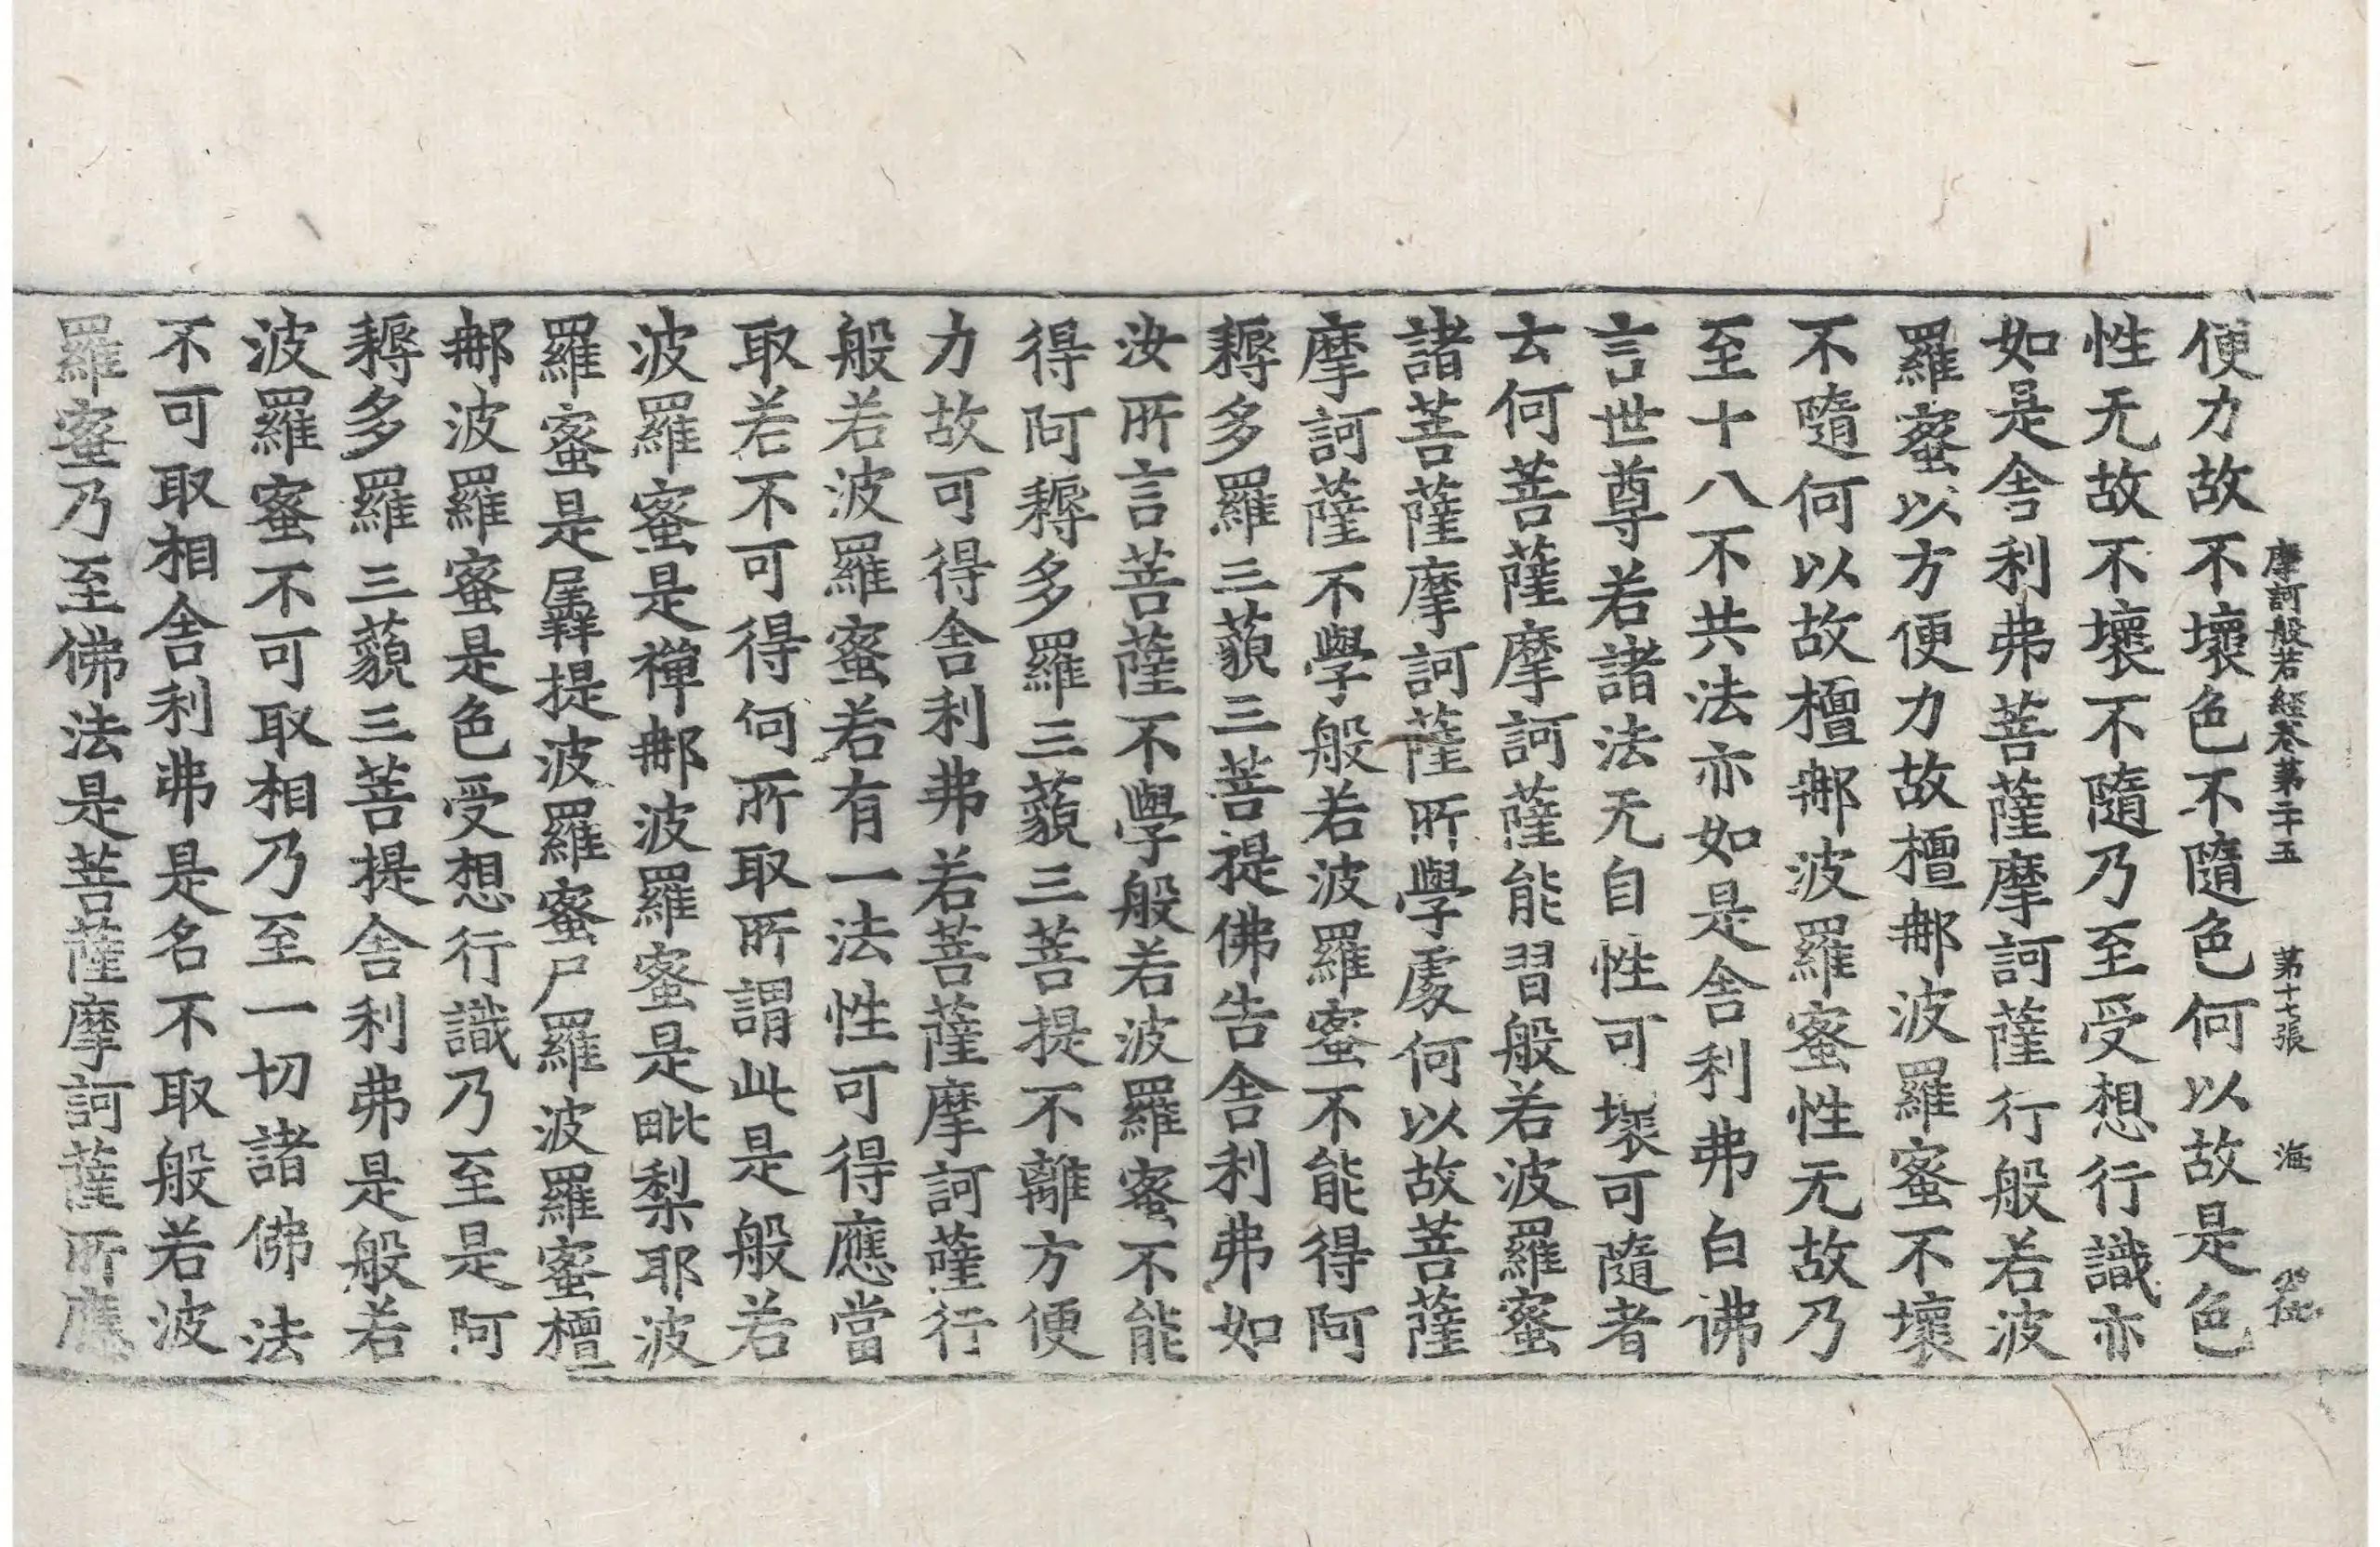 摩訶般若經卷第二十五　第十七張　海
便力故不壞色不隨色何以故是色
性无故不壞不隨乃至受想行識亦
如是舎利弗菩薩摩訶薩行般若波
羅蜜以方便力故檀那波羅蜜不壞
不隨何以故檀那波羅蜜性无故乃
至十八不共法亦如是舎利弗白佛
言世尊若諸法无自性可壞可隨者
云何菩薩摩訶薩能習般若波羅蜜
諸菩薩摩訶薩所學處何以故菩薩
摩訶薩不學般若波羅蜜不能得阿
耨多羅三藐三菩提佛告舎利弗如
汝所言菩薩不學般若波羅蜜不能
得阿耨多羅三藐三菩提不離方便
力故可得舎利弗若菩薩摩訶薩行
般若波羅蜜若有一法性可得應當
取若不可得何所取所謂此是般若
波羅蜜是禪那波羅蜜是毗梨耶波
羅蜜是羼提波羅蜜尸羅波羅蜜檀
那波羅蜜是色受想行識乃至是阿
耨多羅三藐三菩提舎利弗是般若
波羅蜜不可取相乃至一切諸佛法
不可取相舎利弗是名不取般若波
羅蜜乃至佛法是菩薩摩訶薩所應